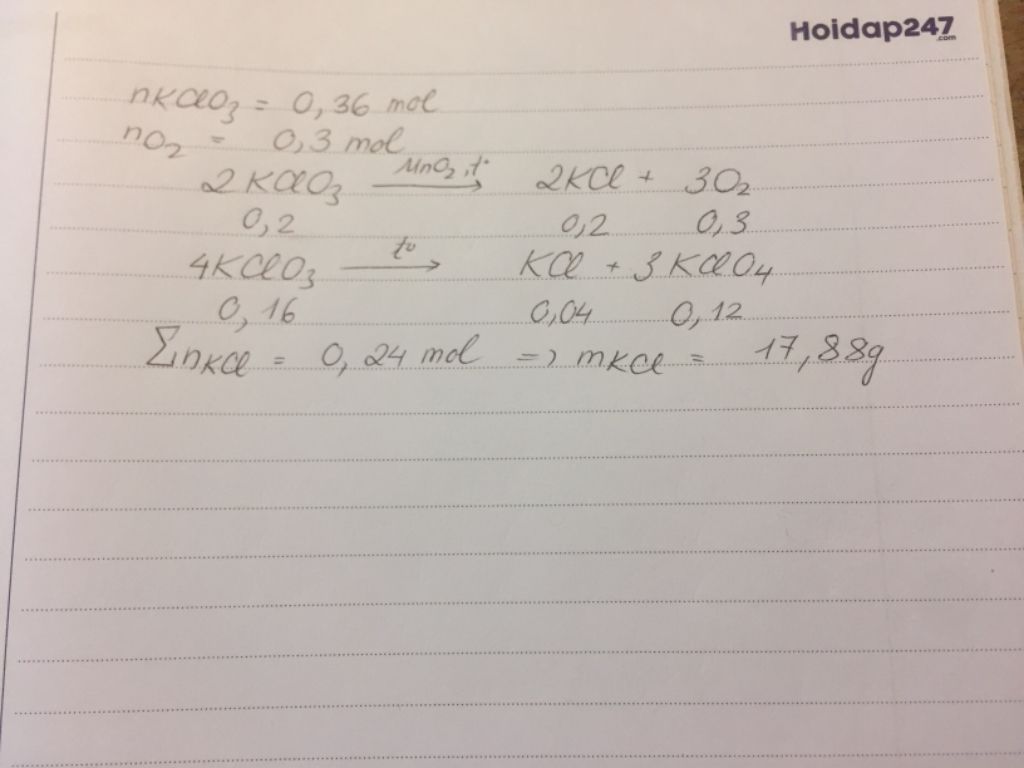 Hoidap247
.com
nKClO3 = 0,36 mol
nO2 = 0,3 mol
2KClO3 —MnO2,t°→ 2KCl + 3O2
0,2 0,2 0,3
4KClO3 —t°→ KCl + 3KClO4
0,16 0,04 0,12
∑nKCl = 0,24 mol => mKCl = 17,88g